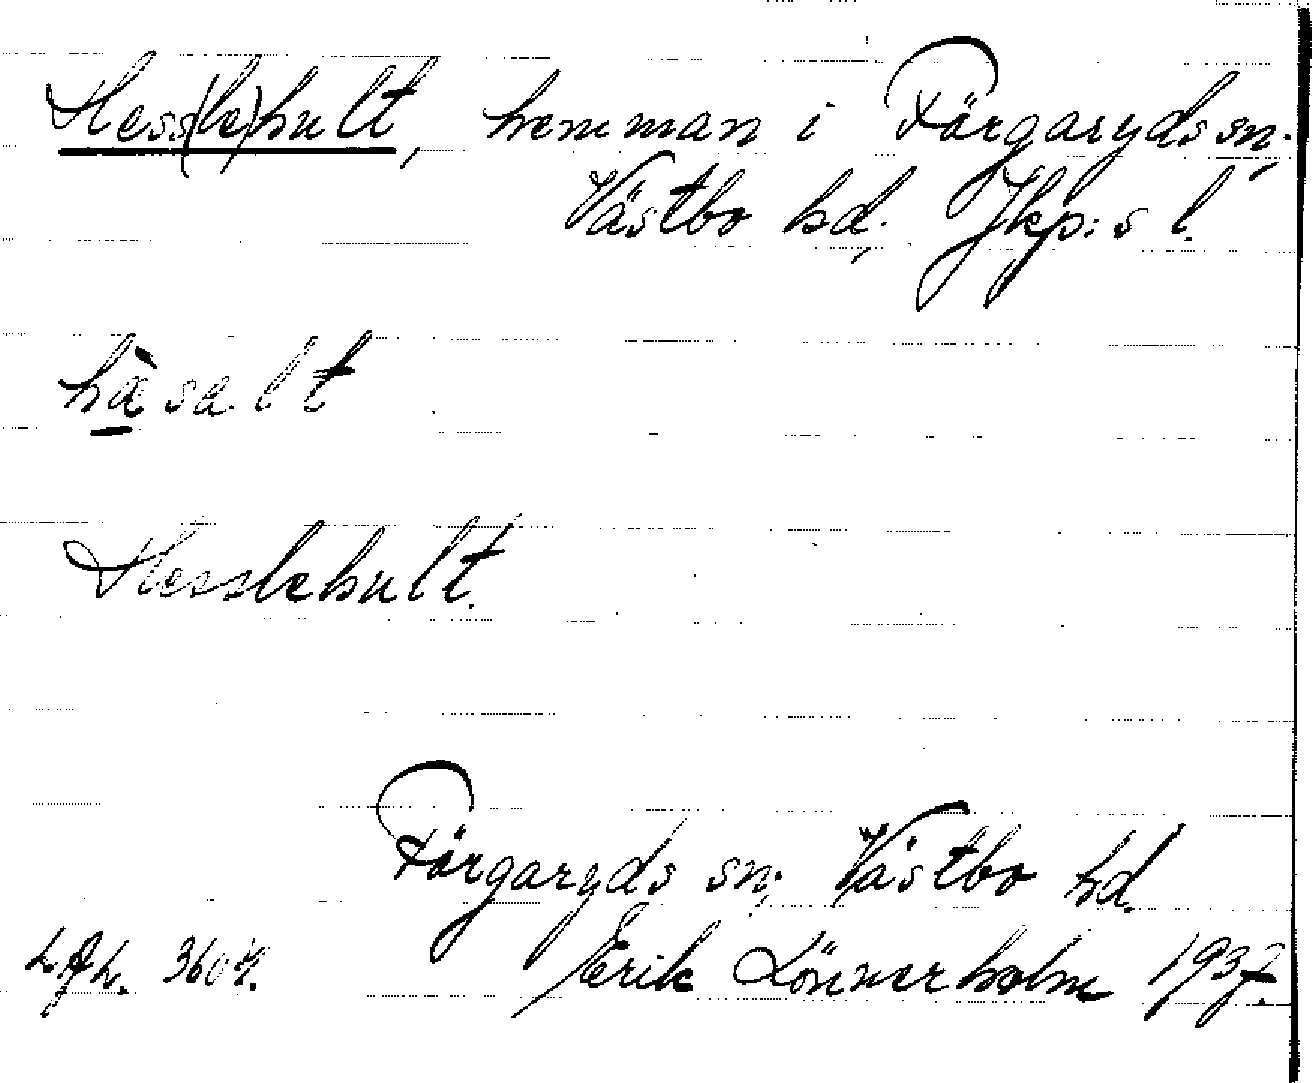 Hess(le)hult, hemman i Färgaryds sn.
Västbo hd. Jkp:s l.
hä̀salt
Hesslehult.
Färgaryds sn, Västbo hd.
Erik Lönnerholm 1937.